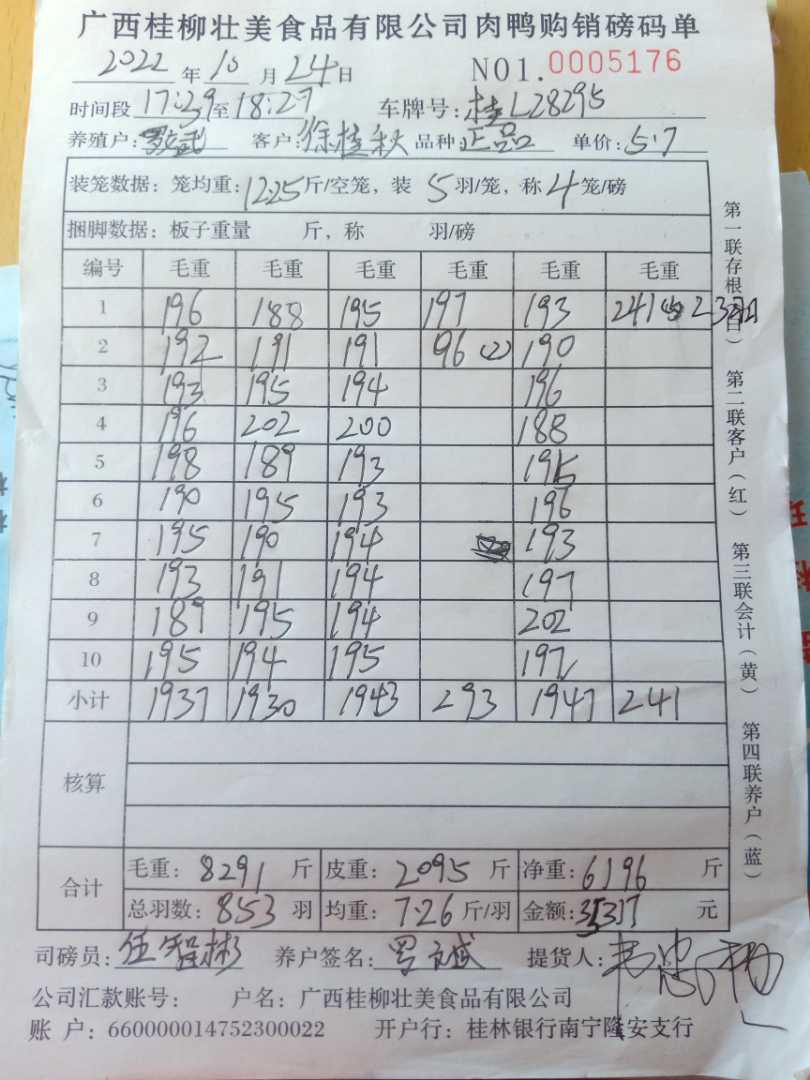 广西桂柳壮美食品有限公司肉鸭购销磅码单
2022 年 10 月 24 日 NO1.0005176
时间段 17:29 至 18:27 车牌号: 桂L28295
养殖户: 客户: 徐桂秋 品种 正品 单价: 5.7
装笼数据: 笼均重: 12.25 斤/空笼, 装 5 羽/笼, 称 4 笼/磅
捆脚数据: 板子重量 斤, 称 羽/磅
编号 毛重 毛重 毛重 毛重 毛重 毛重
1 196 188 195 197 193 241
2 192 191 191 96 (2) 190
3 193 195 194 196
4 196 202 200 188
5 198 189 193 195
6 190 195 193 196
7 195 190 194 193
8 193 191 194 197
9 189 195 194 202
10 195 194 195 197
小计 1937 1930 1943 293 1947 241
核算
合计 毛重: 8291 斤 皮重: 2095 斤 净重: 6196 斤
总羽数: 853 羽 均重: 7.26 斤/羽 金额: 35317 元
司磅员: 任智彬 养户签名: 提货人:
公司汇款账号: 户名: 广西桂柳壮美食品有限公司
账 户: 660000014752300022 开户行: 桂林银行南宁隆安支行
第一联存根(白) 第二联客户(红) 第三联会计(黄) 第四联养户(蓝)